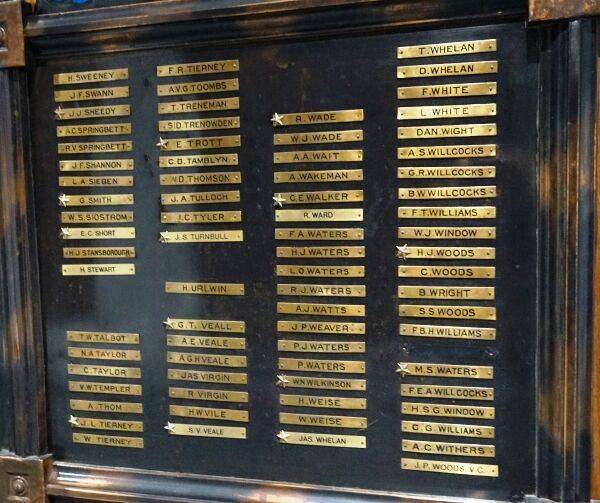 H. SWEENEY
J.F. SWANN
J.J. SHEEDY
A.C. SPRINGBETT
R.V. SPRINGBETT
J.F. SHANNON
L.A. SIEBEN
G. SMITH
W.S. SJOSTROM
E.C. SHORT
H.J. STANSBOROUGH
H. STEWART
T.W. TALBOT
N.A. TAYLOR
C. TAYLOR
V.W. TEMPLER
A. THOM
J.L. TIERNEY
W. TIERNEY
F.R. TIERNEY
A.V.G. TOOMBS
T. TRENEMAN
S.D. TRENOWDEN
E. TROTT
C.D. TAMBLYN
N.D. THOMSON
J.A. TULLOCH
J.C. TYLER
J.S. TURNBULL
H. URLWIN
G.T. VEALL
A.E. VEALE
A.G.H. VEALE
JAS VIRGIN
R. VIRGIN
H.W. VILE
S.V. VEALE
R. WADE
W.J. WADE
A.A. WAIT
A. WAKEMAN
C.E. WALKER
R. WARD
F.A. WATERS
H.J. WATERS
L.O. WATERS
R.J. WATERS
A.J. WATTS
J.P. WEAVER
P.J. WATERS
P. WATERS
WN. WILKINSON
H. WEISE
W. WEISE
JAS. WHELAN
T. WHELAN
D. WHELAN
F. WHITE
L. WHITE
DAN. WIGHT
A.S. WILLCOCKS
G.R. WILLCOCKS
B.W. WILLCOCKS
F.T. WILLIAMS
W.J. WINDOW
H.J. WOODS
C. WOODS
B. WRIGHT
S.S. WOODS
F.B.H. WILLIAMS
M.S. WATERS
F.E.A. WILLCOCKS
H.S.G. WINDOW
C.G. WILLIAMS
A.C. WITHERS
J.P. WOODS V.C.